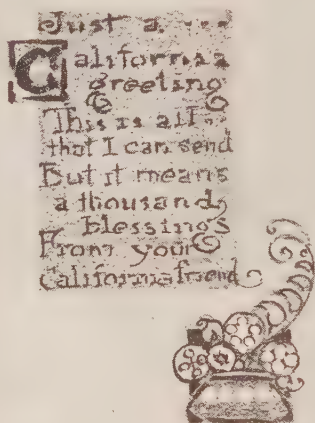 Just a ...
California
greeting
This is all..
that I can send
But it means
a thousand
blessings
From your
California friend